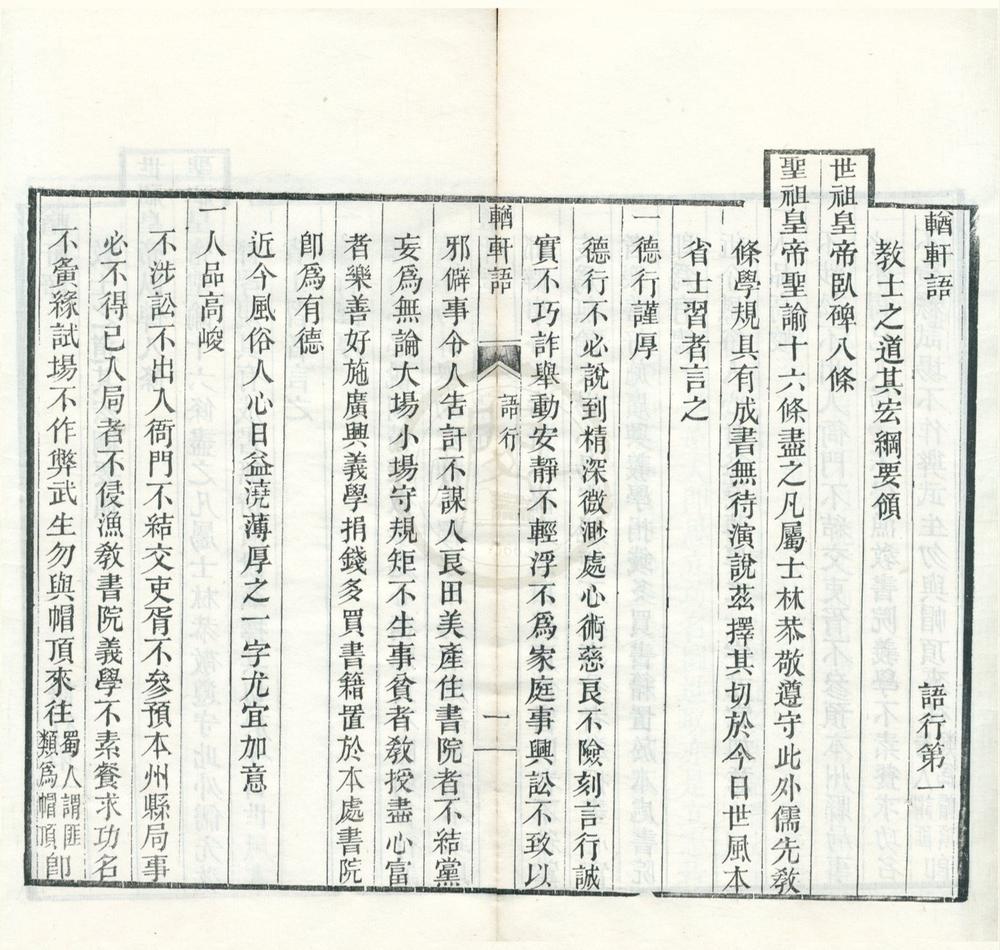 輶軒語　語行第一
教士之道其宏綱要領
世祖皇帝臥碑八條
聖祖皇帝聖諭十六條盡之凡屬士林恭敬遵守此外儒先敎
條學規具有成書無待演說茲擇其切於今日世風本
省士習者言之
一德行謹厚
德行不必說到精深微渺處心術慈良不險刻言行誠
實不巧詐舉動安靜不輕浮不爲家庭事興訟不致以
輶軒語　語行　一
邪僻事令人告訐不謀人良田美產住書院者不結黨
妄爲無論大場小場守規矩不生事貧者敎授盡心富
者樂善好施廣興義學捐錢多買書籍置於本處書院
卽爲有德
近今風俗人心日益澆薄厚之一字尤宜加意
一人品高峻
不涉訟不出入衙門不結交吏胥不參預本州縣局事
必不得已入局者不侵漁敎書院義學不素餐求功名
不夤緣試場不作弊武生勿與帽頂來往蜀人謂匪類爲帽頂卽